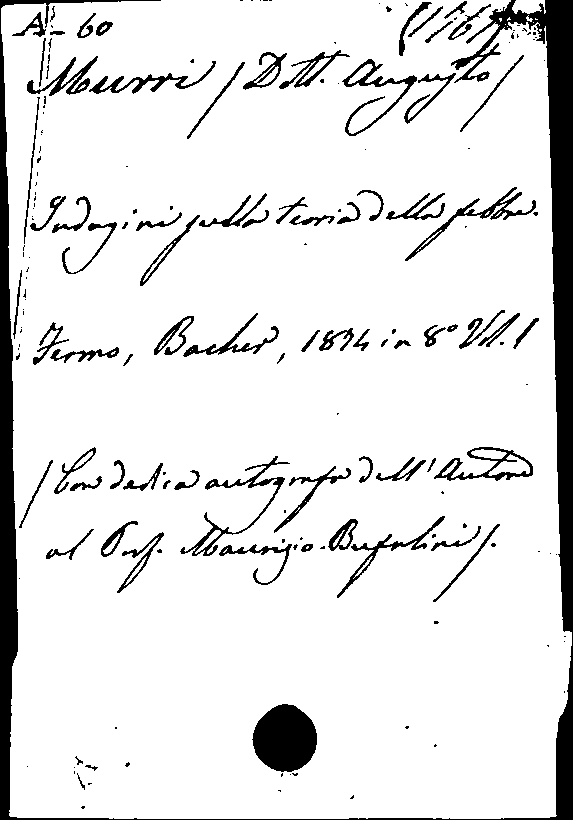 A - 60 (1761)
Murri / Dott. Augusto /
Indagini sulla teoria della febbre.
Fermo, Bacher, 1874 in 8° Vol. 1
/ Con dedica autografa dell'Autore
al Prof. Maurizio Bufalini /.